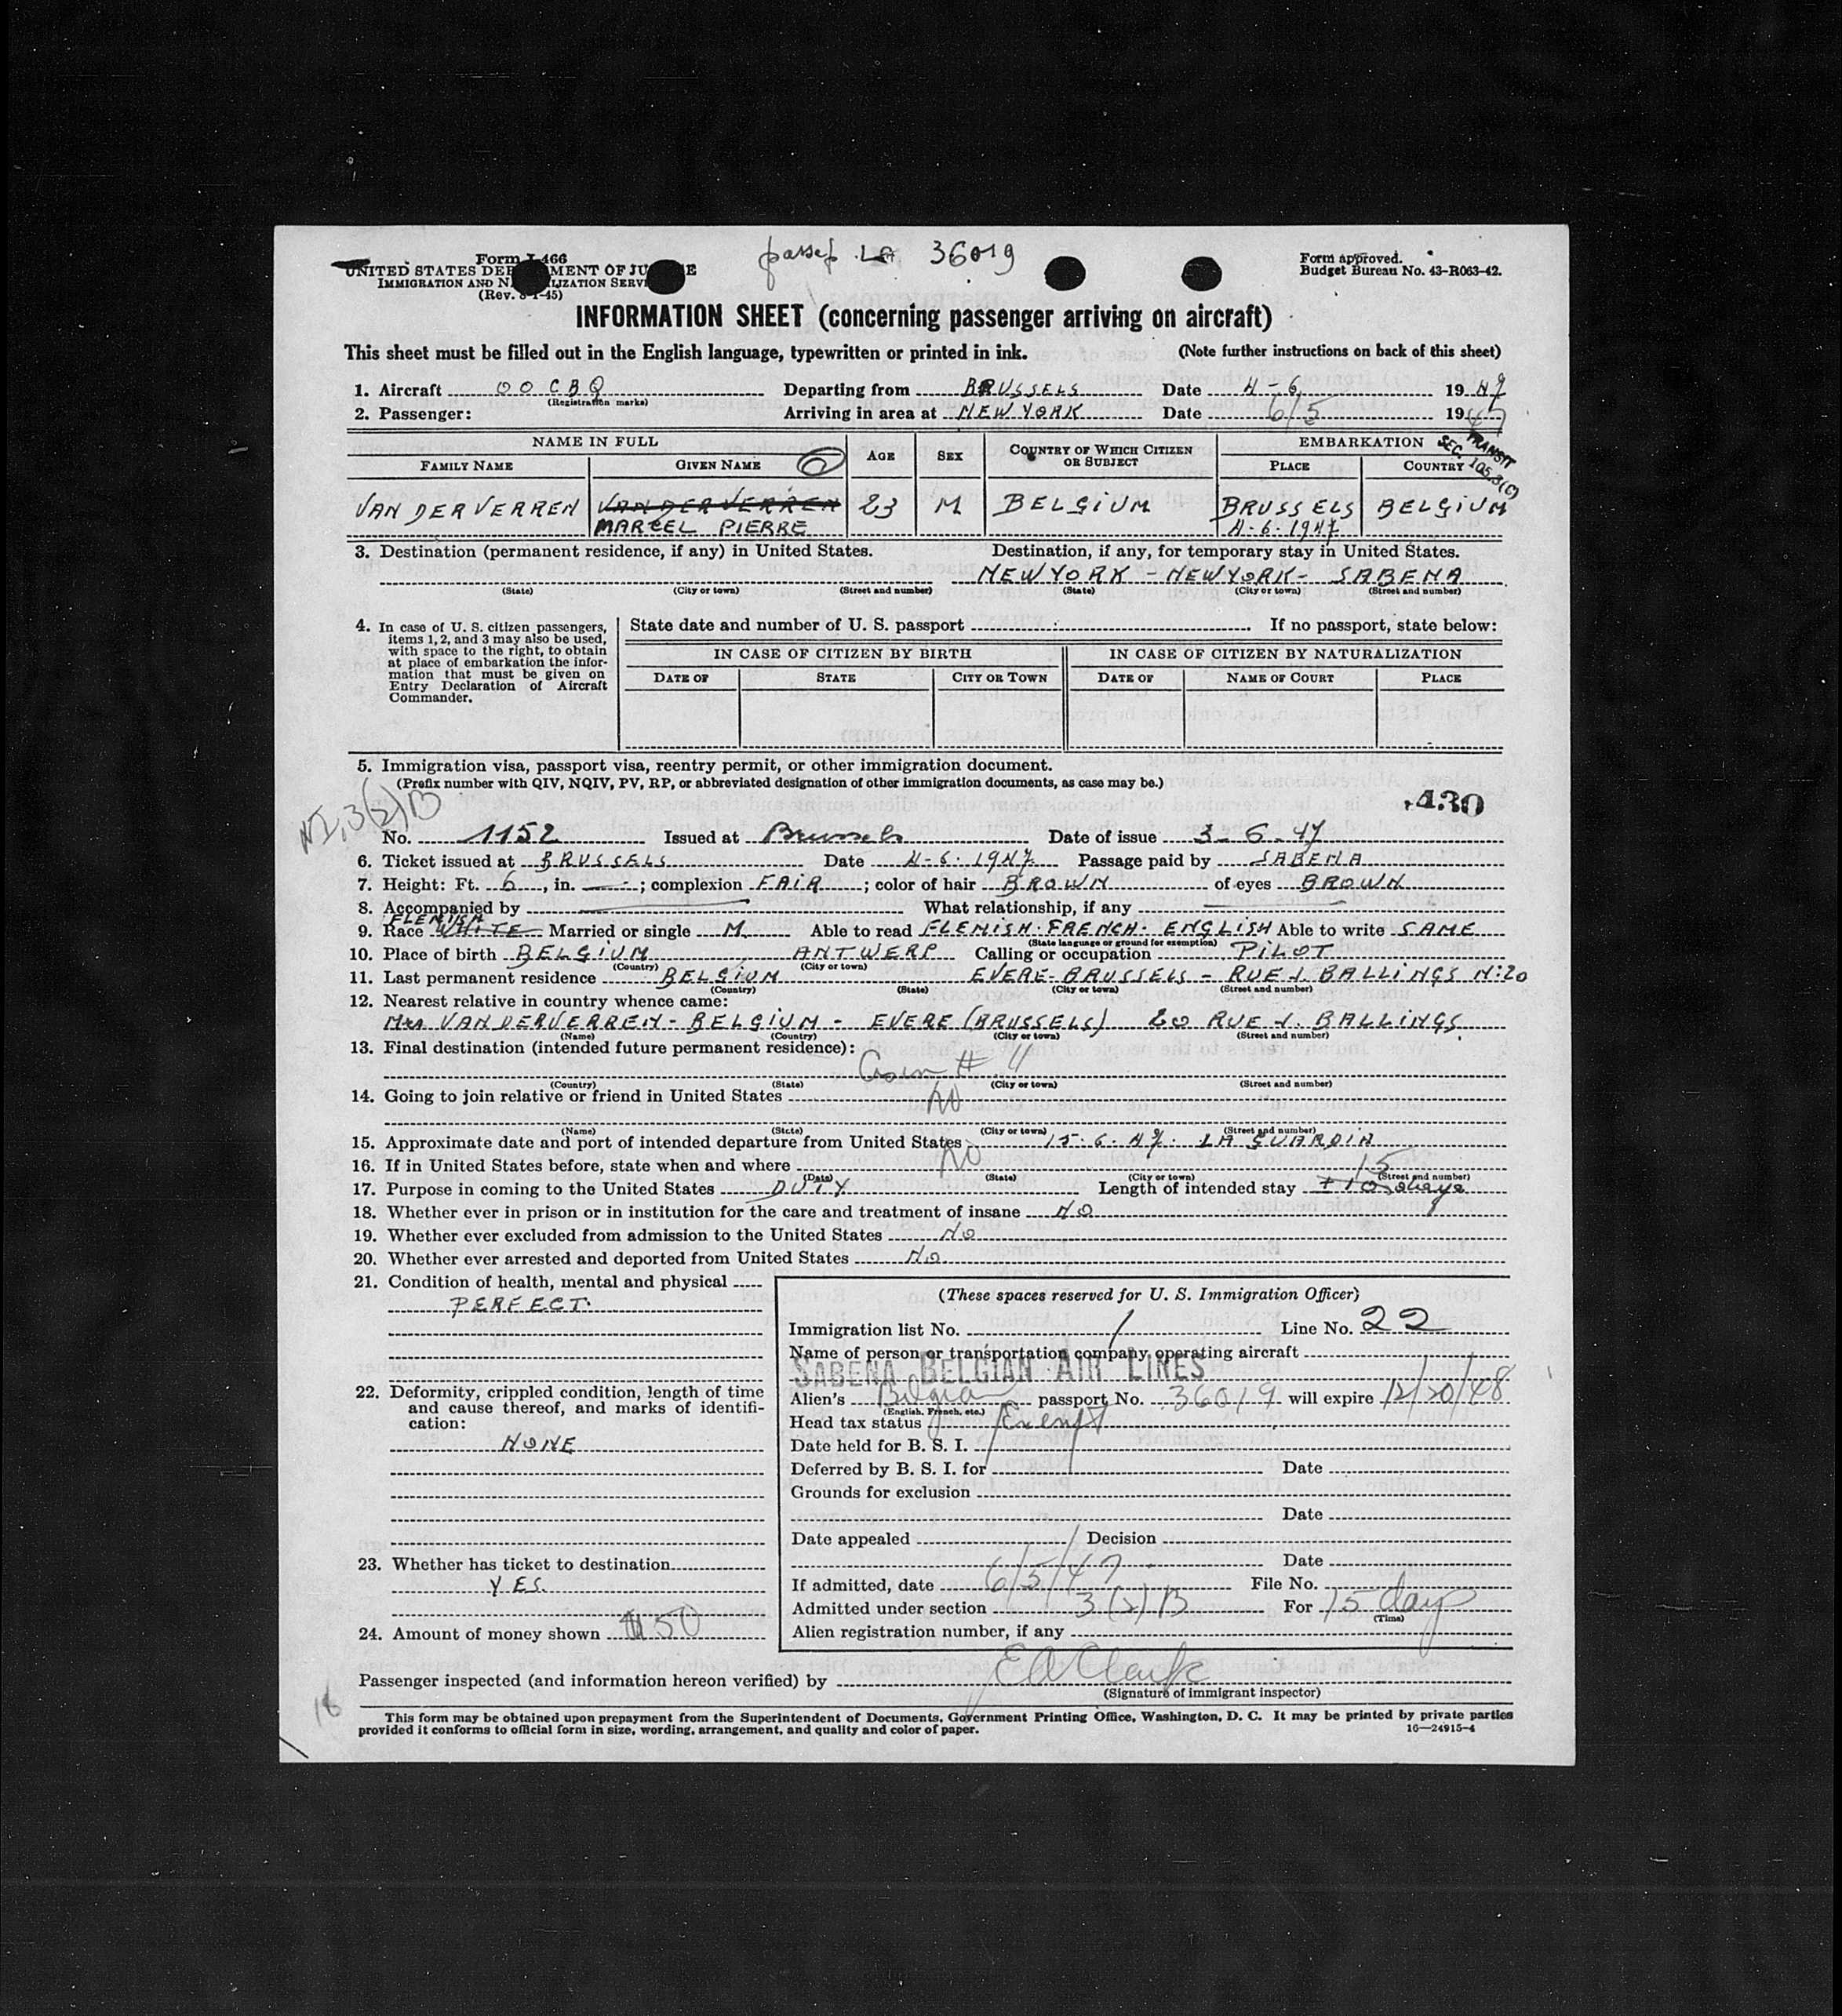 passep. 36019
Form I-466
UNITED STATES DEPARTMENT OF JUSTICE
IMMIGRATION AND NATURALIZATION SERVICE
(Rev. 8-1-45)
Form approved.
Budget Bureau No. 43-R063-42.
INFORMATION SHEET (concerning passenger arriving on aircraft)
This sheet must be filled out in the English language, typewritten or printed in ink. (Note further instructions on back of this sheet)
1. Aircraft OO CBQ Departing from BRUSSELS Date 4-6 1947
(Registration marks)
2. Passenger: Arriving in area at NEW YORK Date 6/5 1947
TRANSIT
SEC. 105.3(C)
NAME IN FULL AGE SEX COUNTRY OF WHICH CITIZEN OR SUBJECT EMBARKATION
FAMILY NAME GIVEN NAME PLACE COUNTRY
VAN DER VERREN VAN DER VERREN 23 M BELGIUM BRUSSELS BELGIUM
MARCEL PIERRE 4-6-1947
3. Destination (permanent residence, if any) in United States. Destination, if any, for temporary stay in United States.
NEW YORK - NEW YORK - SABENA
(State) (City or town) (Street and number) (State) (City or town) (Street and number)
4. In case of U. S. citizen passengers, items 1, 2, and 3 may also be used, with space to the right, to obtain at place of embarkation the information that must be given on Entry Declaration of Aircraft Commander.
State date and number of U. S. passport If no passport, state below:
IN CASE OF CITIZEN BY BIRTH IN CASE OF CITIZEN BY NATURALIZATION
DATE OF STATE CITY OR TOWN DATE OF NAME OF COURT PLACE
5. Immigration visa, passport visa, reentry permit, or other immigration document.
(Prefix number with QIV, NQIV, PV, RP, or abbreviated designation of other immigration documents, as case may be.)
430
NI, 3(2)B
No. 1152 Issued at Brussels Date of issue 3-6-47
6. Ticket issued at BRUSSELS Date 4-6-1947 Passage paid by SABENA
7. Height: Ft. 6, in. —; complexion FAIR; color of hair BROWN of eyes BROWN
8. Accompanied by What relationship, if any
FLEMISH
9. Race WHITE Married or single M. Able to read FLEMISH-FRENCH-ENGLISH Able to write SAME
(State language or ground for exemption)
10. Place of birth BELGIUM ANTWERP Calling or occupation PILOT
(Country) (City or town)
11. Last permanent residence BELGIUM EVERE-BRUSSELS - RUE J. BALLINGS N:20
(Country) (State) (City or town) (Street and number)
12. Nearest relative in country whence came:
Mrs VAN DER VERREN - BELGIUM - EVERE (BRUSSELS) 20 RUE J. BALLINGS
(Name) (Country) (City or town) (Street and number)
13. Final destination (intended future permanent residence):
# 11
(Country) (State) (City or town) (Street and number)
14. Going to join relative or friend in United States NO
(Name) (State) (City or town) (Street and number)
15. Approximate date and port of intended departure from United States 15-6-47. LA GUARDIA
16. If in United States before, state when and where NO
(Date) (State) (City or town) (Street and number)
15
17. Purpose in coming to the United States DUTY Length of intended stay ± 10 days
18. Whether ever in prison or in institution for the care and treatment of insane NO
19. Whether ever excluded from admission to the United States No
20. Whether ever arrested and deported from United States No.
21. Condition of health, mental and physical
PERFECT.
22. Deformity, crippled condition, length of time and cause thereof, and marks of identification:
NONE
23. Whether has ticket to destination
YES
24. Amount of money shown $50
(These spaces reserved for U. S. Immigration Officer)
Immigration list No. 1 Line No. 22
Name of person or transportation company operating aircraft
SABENA BELGIAN AIR LINES
Alien's Belgian passport No. 36019 will expire 12/20/48
(English, French, etc.)
Head tax status Exempt
Date held for B. S. I.
Deferred by B. S. I. for Date
Grounds for exclusion
Date
Date appealed Decision
Date
If admitted, date 6/5/47 File No.
Admitted under section 3(2)B For 15 days
(Time)
Alien registration number, if any
Passenger inspected (and information hereon verified) by EA Clark
(Signature of immigrant inspector)
18
This form may be obtained upon prepayment from the Superintendent of Documents, Government Printing Office, Washington, D. C. It may be printed by private parties
provided it conforms to official form in size, wording, arrangement, and quality and color of paper. 16—24915-4